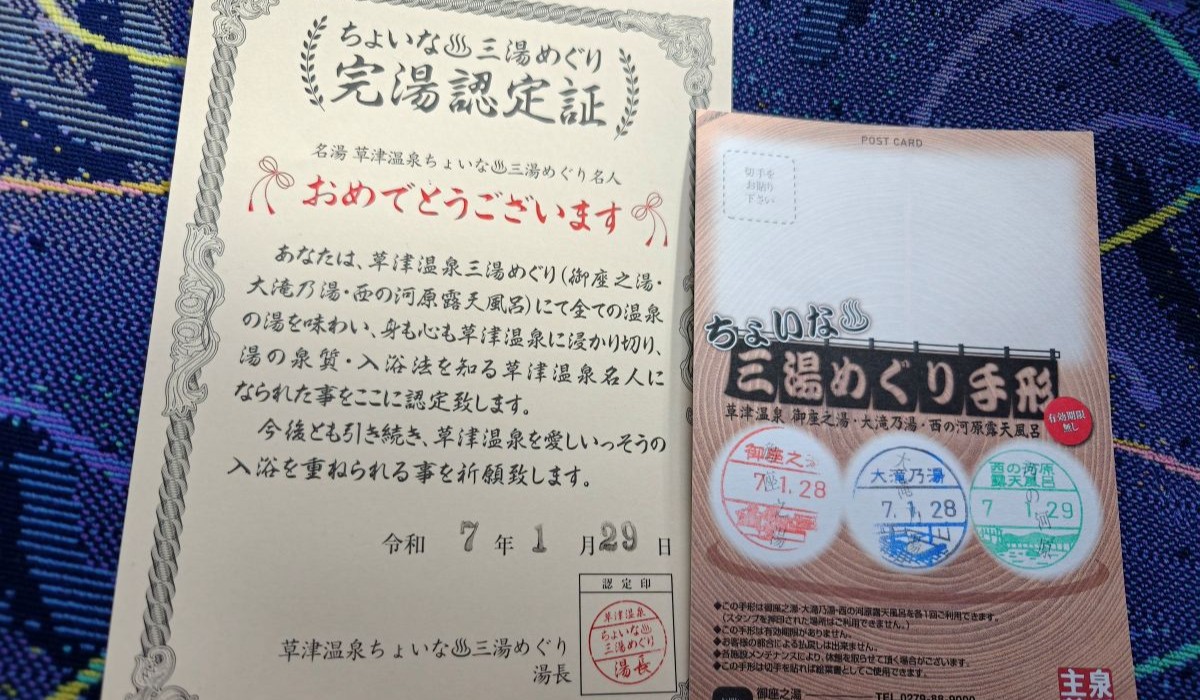 ちょいな♨三湯めぐり
完湯認定証
名湯 草津温泉ちょいな♨三湯めぐり名人
おめでとうございます
あなたは、草津温泉三湯めぐり(御座之湯・
大滝乃湯・西の河原露天風呂)にて全ての温泉
の湯を味わい、身も心も草津温泉に浸かり切り、
湯の泉質・入浴法を知る草津温泉名人に
なられた事をここに認定致します。
今後とも引き続き、草津温泉を愛しいっそうの
入浴を重ねられる事を祈願致します。
令和 7年1月29日
認定印
草津温泉
ちょいな♨
三湯めぐり
湯長
草津温泉ちょいな♨三湯めぐり
湯長
POST CARD
切手を
お貼り
下さい
ちょいな♨
三湯めぐり手形
草津温泉 御座之湯・大滝乃湯・西の河原露天風呂
有効期限
無し
御座之湯
7.1.28
大滝乃湯
7.1.28
西の河原
露天風呂
7 1.29
◆この手形は御座之湯・大滝乃湯・西の河原露天風呂を各1回ご利用できます。
(スタンプを押印された場所はご利用できません。)
◆この手形は有効期限がありません。
◆お客様の都合による払戻しは出来ません。
◆各施設メンテナンスにより、休館を取らせて頂く場合がございます。
◆この手形は切手を貼れば絵葉書としてご使用できます。
御座之湯 TEL 0279-88-9000
主泉